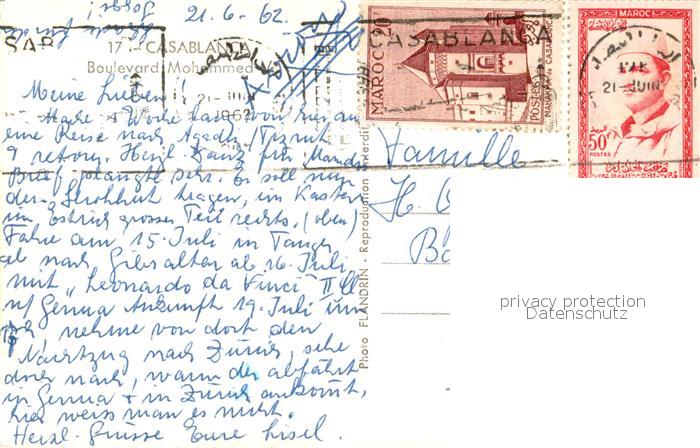 21.6.62.
17 - CASABLANCA
Boulevard Mohammed
Meine Lieben!
Mache 4 Woche lang von hier aus
eine Reise nach Agadir/Tiznit
& retour. Herzl. Dank für Mandis
Brief - plangte sehr. Er soll nur
den Strohhut tragen, im Kasten
im Estrich grosser Teil rechts. (oben)
Fahre am 15. Juli in Tanger
ab nach Gibraltar ab 16. Juli
mit "Leonardo da Vinci" II Cl.
n/ Genua Ankunft 19. Juli um
nehme von dort den
Nachtzug nach Zürich, sehe
dort nach, wann der abfährt
in Genua & in Zürich ankommt,
hier weiss man es nicht.
Herzl. Grüsse Eure Lisel.
Photo FLANDRIN - Reproduction interdite
CASABLANCA
MAROC 20
POSTES
MAROC
21 JUIN
50F
POSTES
Familie
H.
privacy protection
Datenschutz